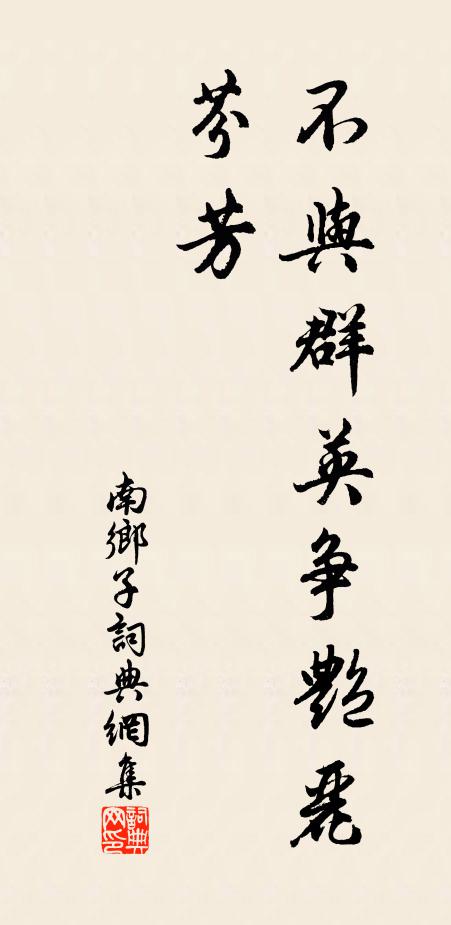 不與群英争艷麗
芬芳
南鄉子詞典網集
詞典网印